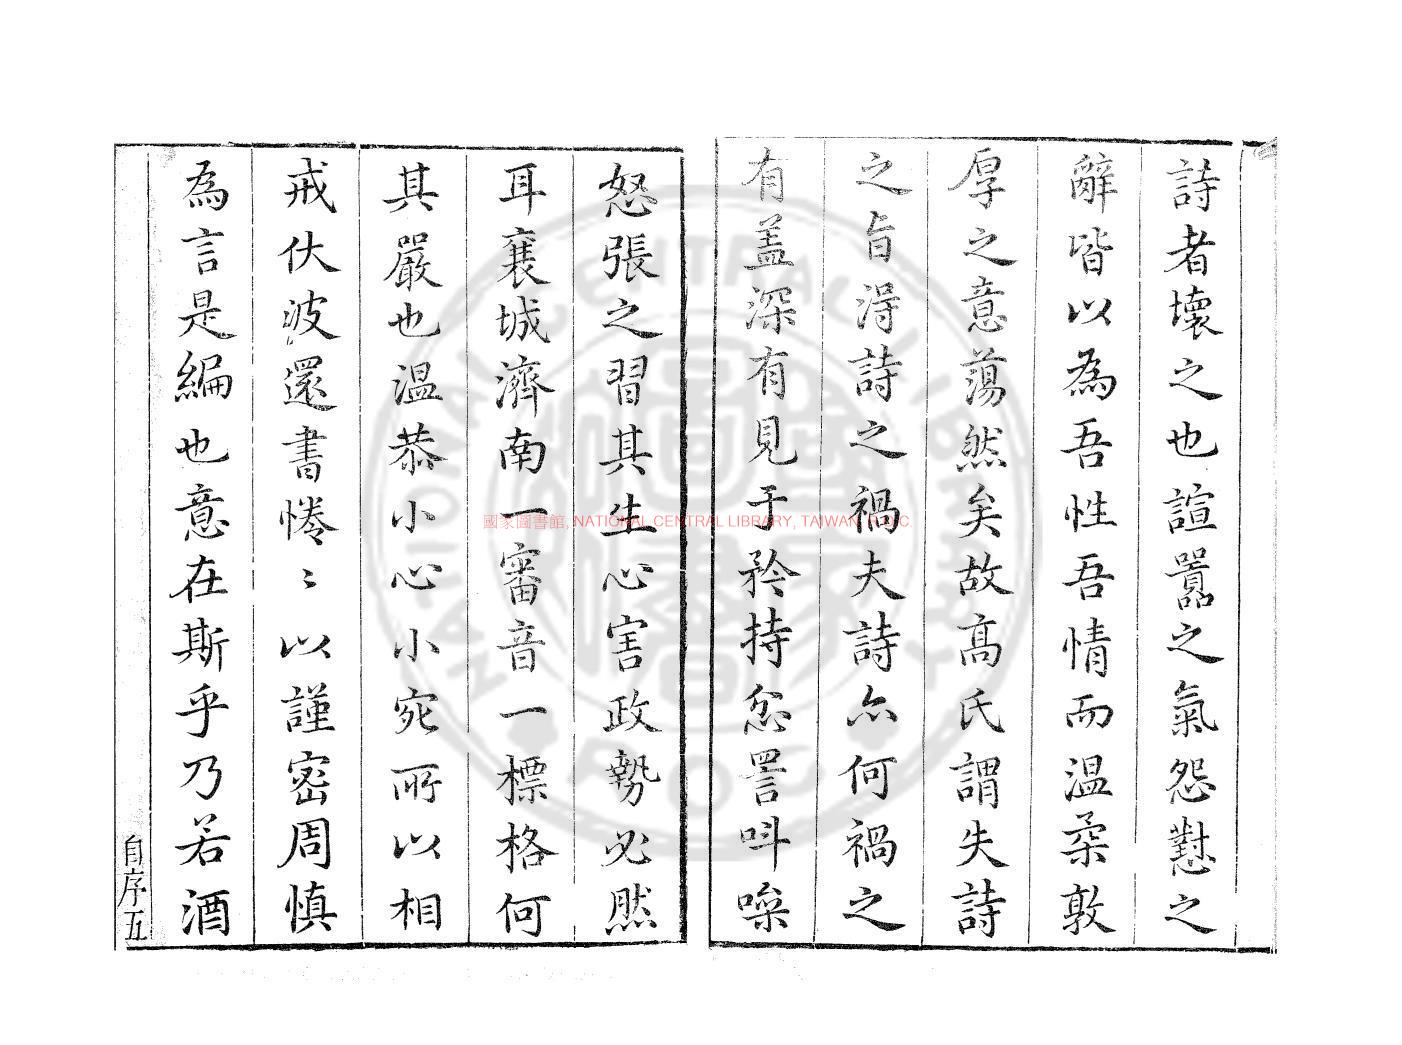 詩者壞之也諠囂之氣怨懟之
辭皆以為吾性吾情而温柔敦
厚之意蕩然矣故高氏謂失詩
之旨淂詩之禍夫詩亦何禍之
有盖深有見于矜持忿詈呌噪
怒張之習其生心害政勢必然
耳襄城濟南一審音一標格何
其嚴也温恭小心小宛所以相
戒伏波還書惓〻以謹密周慎
為言是編也意在斯乎乃若酒
自序五
國家圖書館, NATIONAL CENTRAL LIBRARY, TAIWAN, R.O.C.